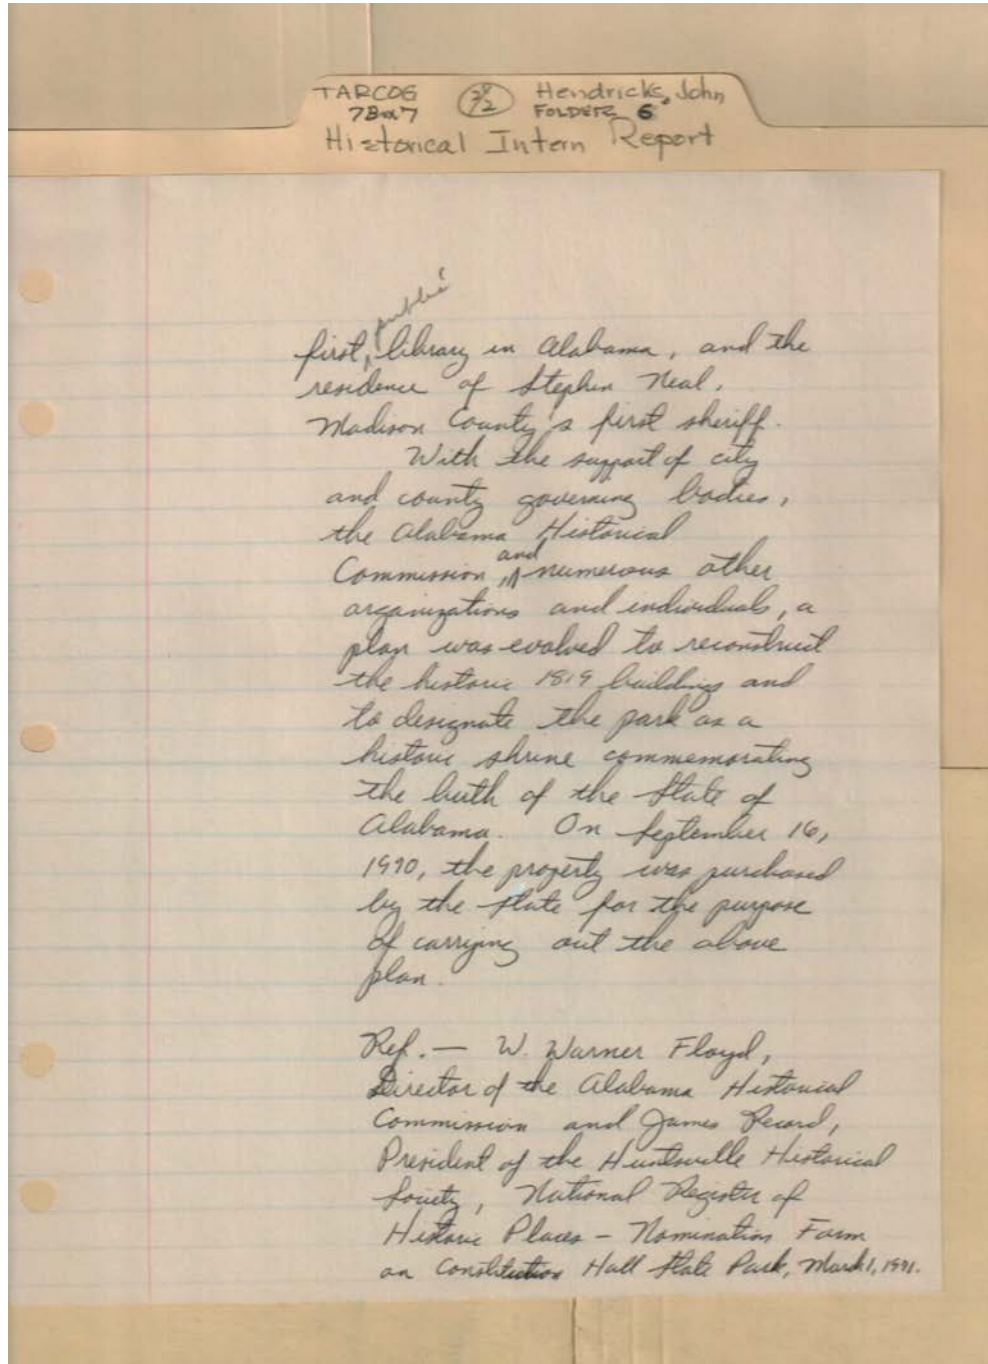 TARCOG Hendricks, John
7Box7 FOLDER 6
Historical Intern Report
public
first, library in Alabama, and the
residence of Stephen Neal,
Madison County's first sheriff.
With the support of city
and county governing bodies,
the Alabama Historical
and
Commission, numerous other
organizations and individuals, a
plan was evolved to reconstruct
the historic 1819 buildings and
to designate the park as a
historic shrine commemorating
the birth of the State of
Alabama. On September 16,
1970, the property was purchased
by the state for the purpose
of carrying out the above
plan.
Ref. — W. Warner Floyd,
Director of the Alabama Historical
Commission and James Record,
President of the Huntsville Historical
Society, National Register of
Historic Places - Nomination Form
on Constitution Hall State Park, March 1, 1971.